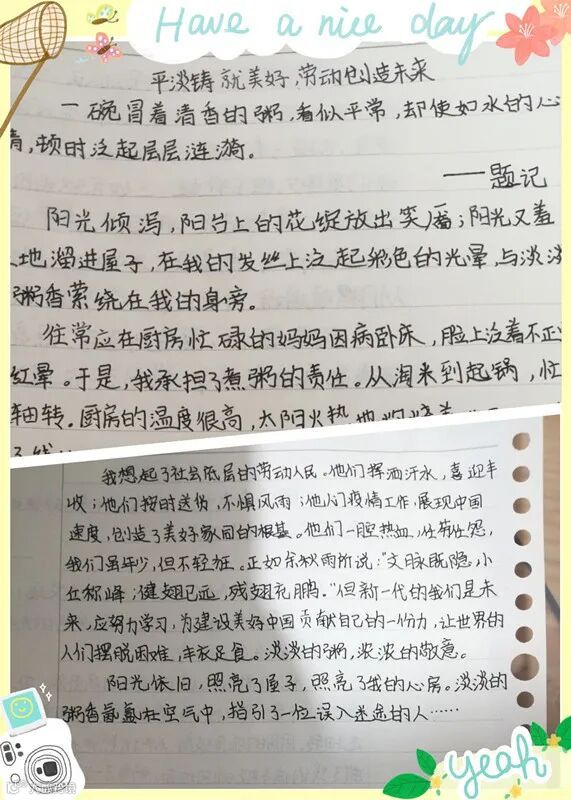 Have a nice day
平淡铸就美好,劳动创造未来
一碗冒着清香的粥,看似平常,却使如水的心
情,顿时泛起层层涟漪。
——题记
阳光倾泻,阳台上的花绽放出笑靥;阳光又羞
地溜进屋子,在我的发丝上泛起彩色的光晕,与淡淡
粥香萦绕在我的身旁。
往常应在厨房忙碌的妈妈因病卧床,脸上泛着不正
红晕。于是,我承担了煮粥的责任。从淘米到起锅,忙
转。厨房的温度很高,太阳火热地灼烧着
我想起了社会底层的劳动人民。他们挥洒汗水,喜迎丰
收;他们按时送货,不惧风雨;他们疫情工作,展现中国
速度,创造了美好家园的根基。他们一腔热血,任劳任怨,
我们虽年少,但不轻狂。正如余秋雨所说:"文脉既隐,小
丘称峰;健翅已远,残翅充鹏。"但新一代的我们是未
来,应努力学习,为建设美好中国贡献自己的一份力,让世界的
人们摆脱困难,丰衣足食。淡淡的粥,浓浓的敬意。
阳光依旧,照亮了屋子,照亮了我的心房。淡淡的
粥香氤氲在空气中,指引了一位误入迷途的人……
yeah